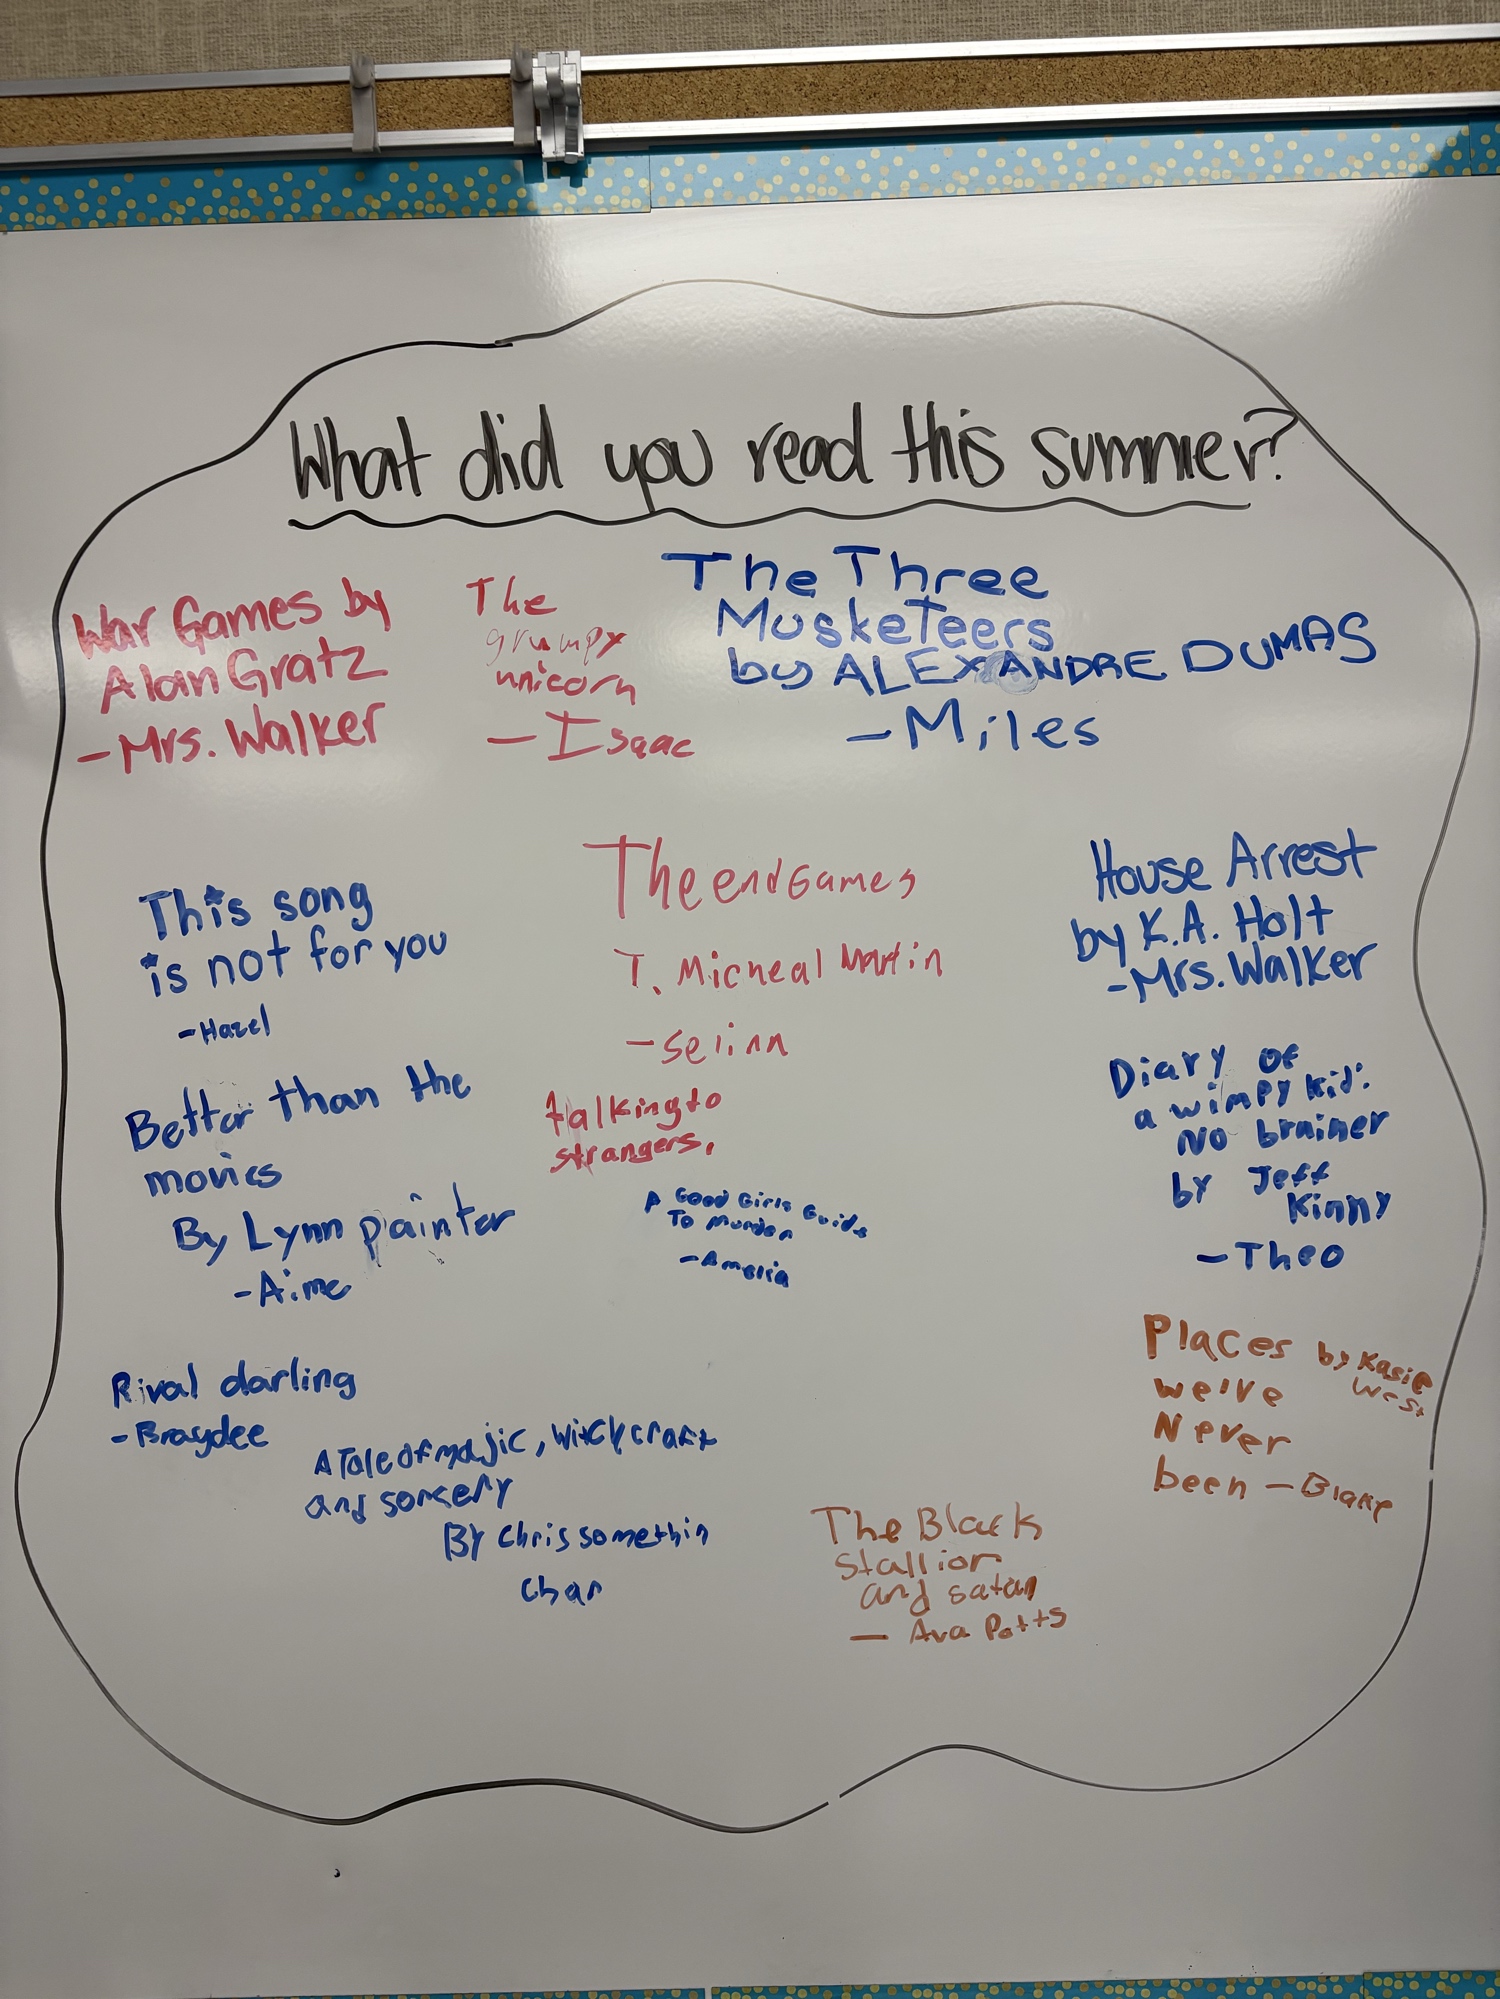 What did you read this summer?
War Games by
Alan Gratz
-Mrs. Walker
The
grumpy
unicorn
- Isaac
The Three
Musketeers
by ALEXANDRE DUMAS
-Miles
This song
is not for you
-Hazel
The end Games
T. Micheal Martin
House Arrest
by K.A. Holt
-Mrs. Walker
Better than the
movies
By Lynn painter
-Aime
talking to
strangers.
A Good Girls Guide
To Murder
-Amelia
Diary of
a wimpy kid:
No brainer
by Jeff
Kinny
-Theo
Rival darling
-Braydee
A Tale of majic, witchcraft
and sorcery
By Chris somethin
Places by Kasie
West
we've
Never
been - Blake
The Black
stallion
and satan
- Ava Potts